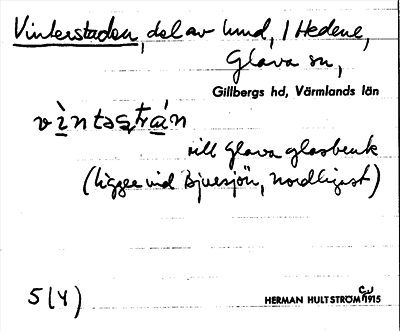 Vinterstaden, del av lund, 1 Hedene,
Glava sn,
Gillbergs hd, Värmlands län
vìntəstrán
till Glava glasbruk
(ligger vid Bjursjön, nordligast)
5(4)
HERMAN HULTSTRÖM 1915